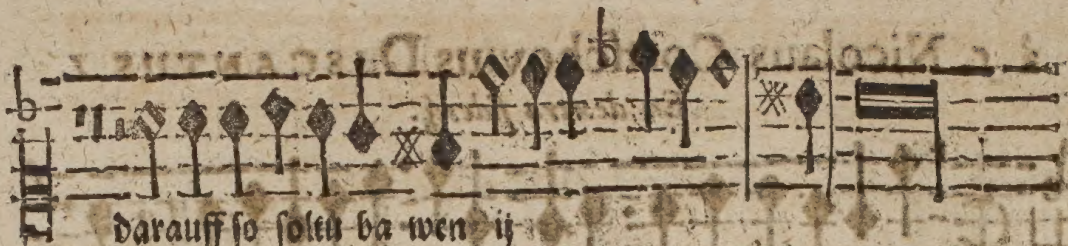 darauff so soltu ba wen ij